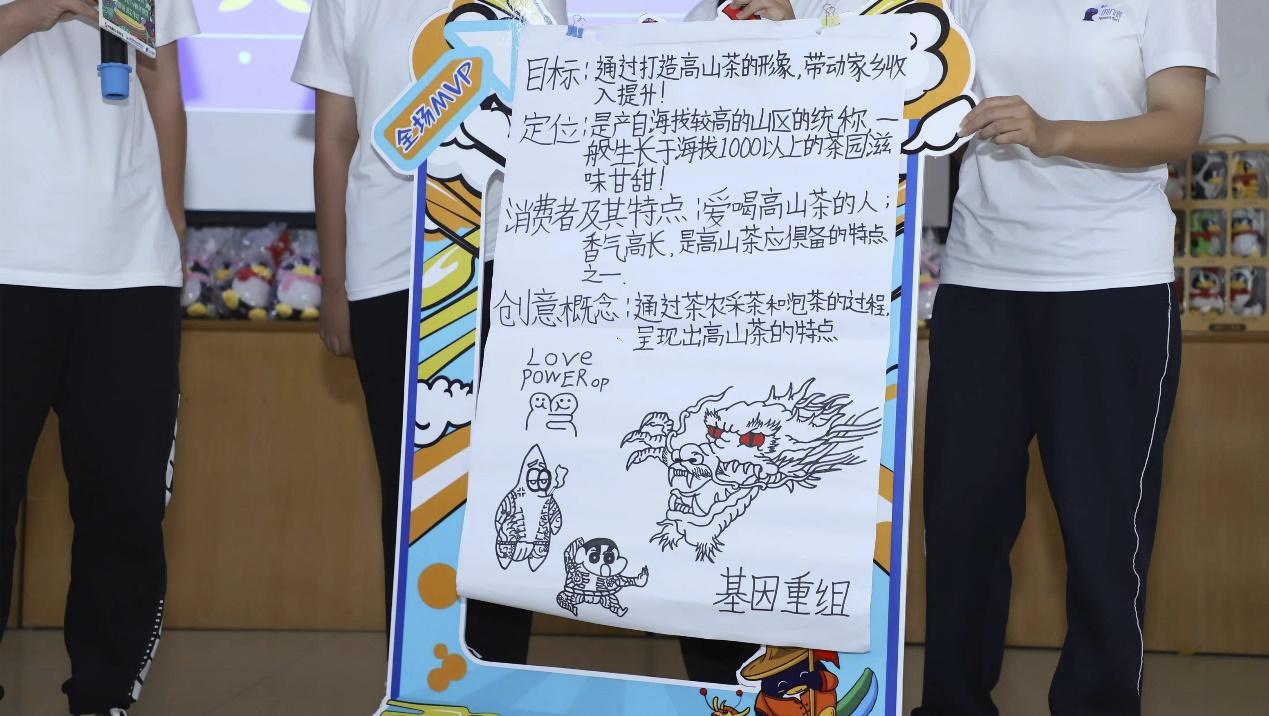 全场MVP
目标：通过打造高山茶的形象，带动家乡收
入提升！
定位：是产自海拔较高的山区的统称，一
般生长于海拔1000以上的茶园滋
味甘甜！
消费者及其特点：爱喝高山茶的人；
香气高长，是高山茶应俱备的特点
之一.
创意概念：通过茶农采茶和泡茶的过程，
呈现出高山茶的特点
Love
POWER OP
基因重组